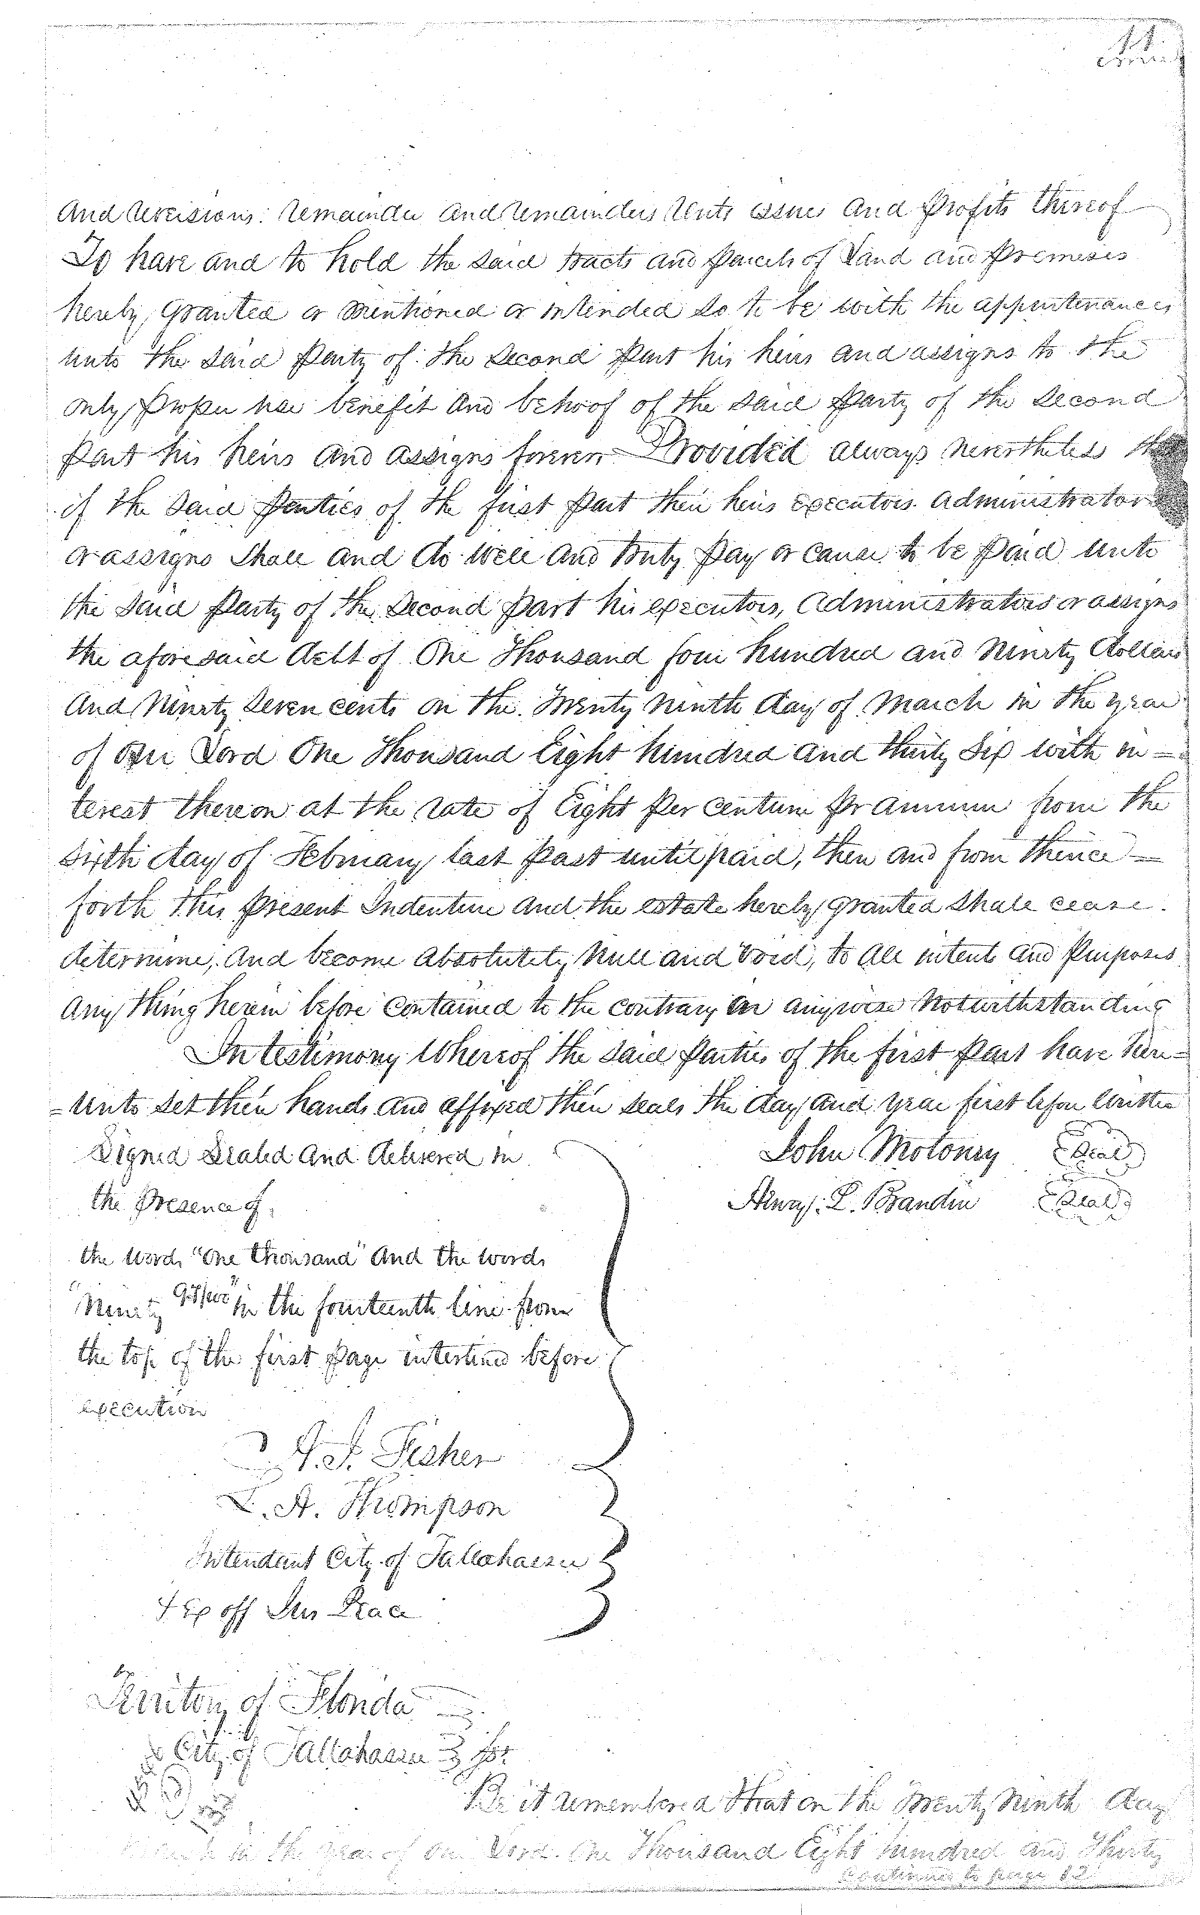 11
And Revisions. Remainder and Remainders Rents issues and Profits thereof
To have and to hold the said tracts and Parcels of Land and Premises
hereby granted or mentioned or intended so to be with the appurtenances
unto the said Party of the Second Part his heirs and assigns to the
only proper use benefit and behoof of the said Party of the Second
Part his heirs and assigns forever Provided always Nevertheless that
if the said Parties of the first Part their heirs executors Administrators
or assigns Shall and do well and truly Pay or cause to be Paid unto
the said Party of the Second Part his executors, Administrators or assigns
the aforesaid debt of One Thousand four hundred and Ninety dollars
and Ninety Seven cents on the Twenty Ninth day of March in the year
of our Lord One Thousand Eight hundred and thirty Six with in=
terest thereon at the rate of Eight Per centum Pr Annum from the
Sixth day of February last Past until paid, then and from thence=
forth this Present Indenture and the estate hereby granted shall cease.
determine, and become absolutely Null and Void, to all intents and Purposes
any thing herein before contained to the contrary in anywise Notwithstanding
In testimony Whereof the said Parties of the first Part have here=
=unto set their hands and affixed their seals the day and year first before written
Signed Sealed and delivered in
the Presence of,
John Moloney Seal
L. Brandin Seal
the words "One thousand" and the words
"Ninety 97/100" in the fourteenth line from
the top of the first Page interlined before
execution
A. J. Fisher
L. A. Thompson
Intendant City of Tallahassee
& Ex off Jus Peace
Territory of Florida
City of Tallahassee
Be it remembered that on the Twenty Ninth day
in the year of our Lord One Thousand Eight hundred and Thirty
Continued to page 12